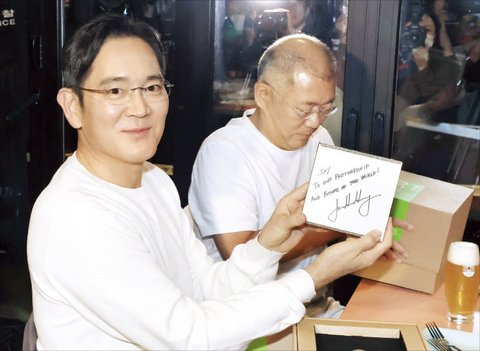 JAY
TO OUR PARTNERSHIP
AND FUTURE OF THE WORLD!